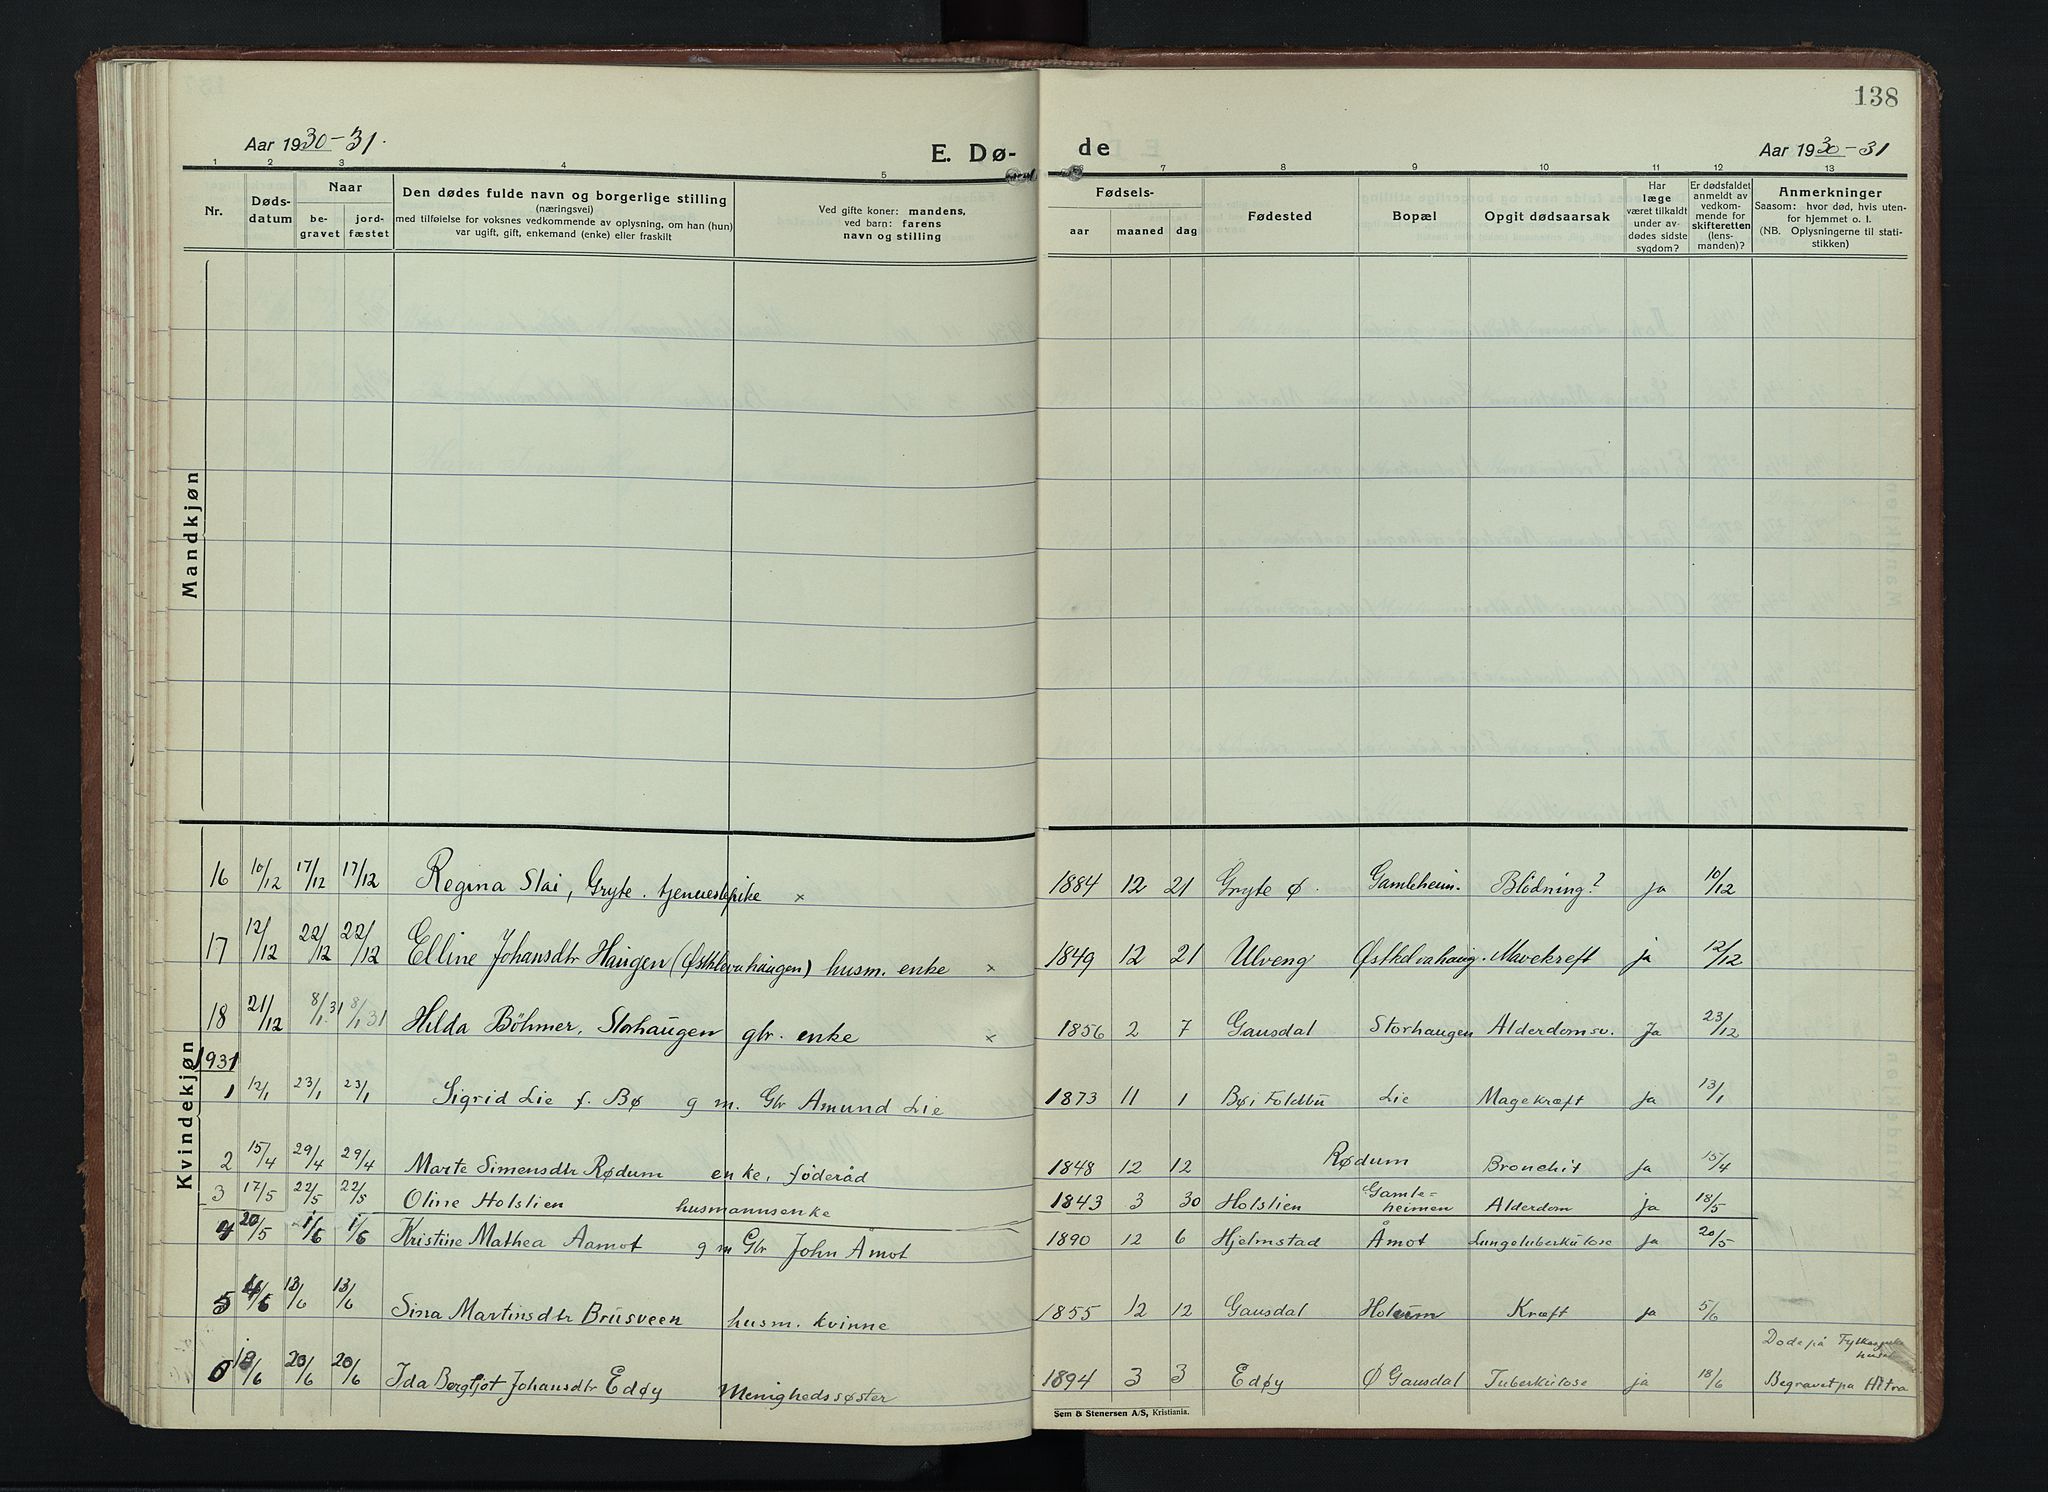 138
Aar 1930-31.
E. Dø-
de
Aar 1930-31
1 2 3 4 5 7 8 9 10 11 12 13
Nr.
Døds-
datum
Naar
be-
gravet
jord-
fæstet
Den dødes fulde navn og borgerlige stilling
(næringsvei)
med tilføielse for voksnes vedkommende av oplysning, om han (hun)
var ugift, gift, enkemand (enke) eller fraskilt
Ved gifte koner: mandens,
ved barn: farens
navn og stilling
Fødsels-
aar maaned dag
Fødested
Bopæl
Opgit dødsaarsak
Har
læge
været tilkaldt
under av-
dødes sidste
sygdom?
Er dødsfaldet
anmeldt av
vedkom-
mende for
skifteretten
(lens-
manden)?
Anmerkninger
Saasom: hvor død, hvis uten-
for hjemmet o. l.
(NB. Oplysningerne til stati-
stikken)
Mandkjøn
Kvindekjøn
16 10/12 17/12 17/12 Regina Slai, Gryte. tjenestepike x 1884 12 21 Gryte Ø. Gamleheim. Blödning? ja 10/12
17 12/12 22/12 22/12 Elline Johansdtr Haugen (Østklevahaugen) husm. enke x 1849 12 21 Ulveng Østkлvahaug. Mavekreft ja 12/12
18 21/12 8/1 31 8/1 31 Hilda Böhmer, Storhaugen gbr. enke x 1856 2 7 Gausdal Storhaugen Alderdomsv. Ja 23/12
1931
1 12/1 23/1 23/1 Sigrid Lie f. Bø g m. Gbr Amund Lie 1873 11 1 Bø i Foldbu Lie Magekræft Ja 13/1
2 15/4 29/4 29/4 Marte Simensdtr Rødum enke, føderåd 1848 12 12 Rødum Bronchit Ja 15/4
3 17/5 22/5 22/5 Oline Holslien husmannsenke 1843 3 30 Holslien Gamle-
heimen Alderdom ja 18/5
4 20/5 1/6 1/6 Kristine Mathea Aamot g m Gbr John Åmot 1890 12 6 Hjelmstad Åmot Lungetuberkulose Ja 20/5
5 4/6 13/6 13/6 Sina Martinsdtr Brusveen husm. kvinne 1855 12 12 Gausdal Holum Kræft ja 5/6
Døde på Fylkessjuke
huset
6 18/6 20/6 20/6 Ida Bergljot Johansdtr Edøy Menighedssøster 1894 3 3 Edøy Ø Gausdal Tuberkulose ja 18/6 Begravet på Hitra
Sem & Stenersen A/S, Kristiania.